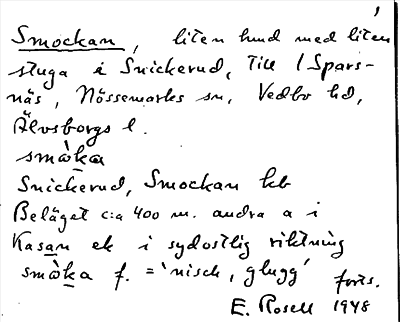 1
Smockan, liten lund med liten
stuga i Snickerud, Till 1 Spars-
näs, Nössemarks sn, Vedbo hd,
Älvsborgs l.
smòka
Snickerud, Smockan hb
Beläget c:a 400 m. andra a i
Kasan ek i sydostlig riktning
smòka f. = 'nisch, glugg' forts.
E. Rosell 1948